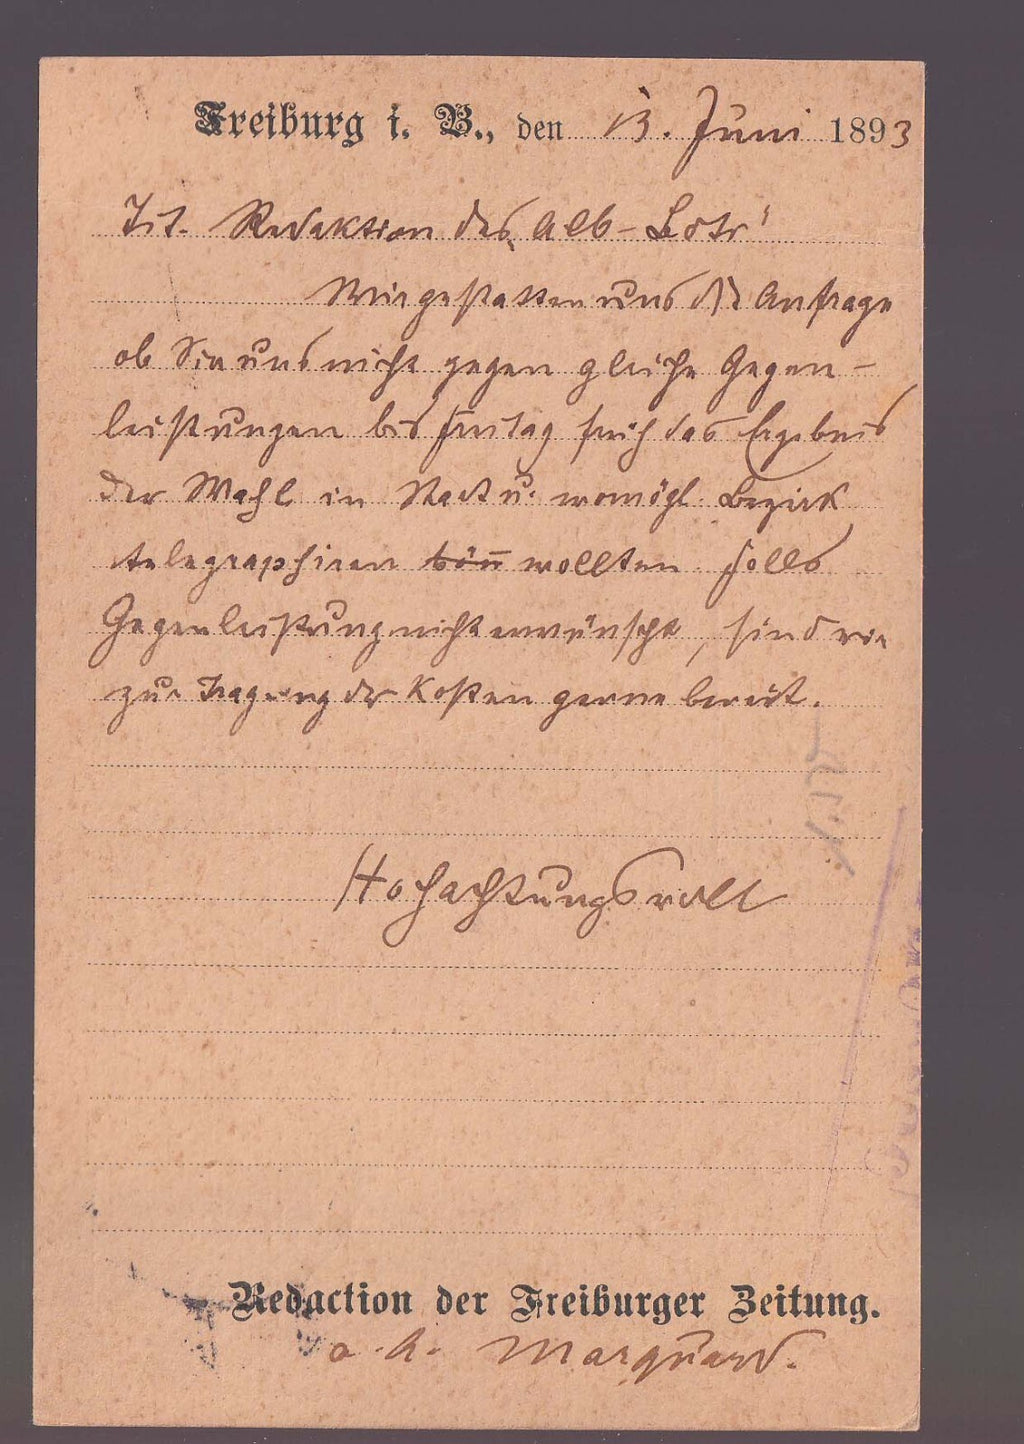 Freiburg i. B., den 13. Juni 1893
Tit. Redaktion des „Alb-Bote“
Wir gestatten uns die Anfrage
ob Sie uns nicht gegen gleiche Gegen-
leistungen bis Freitag früh das Ergebnis
der Wahl in Stadt u. womögl. Bezirk
telegraphiren wollten. Falls
Gegenleistung nicht erwünscht, sind wir
zur Tragung der Kosten gerne bereit.
Hochachtungsvoll
Redaction der Freiburger Zeitung.
Marquard.